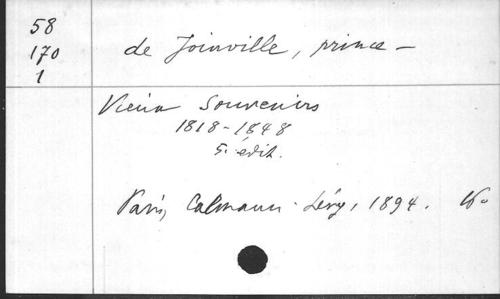 58
170
1
de Joinville, prince –
Vieux Souvenirs
1818-1848
5. édit.
Paris, Calmann-Lévy, 1894.